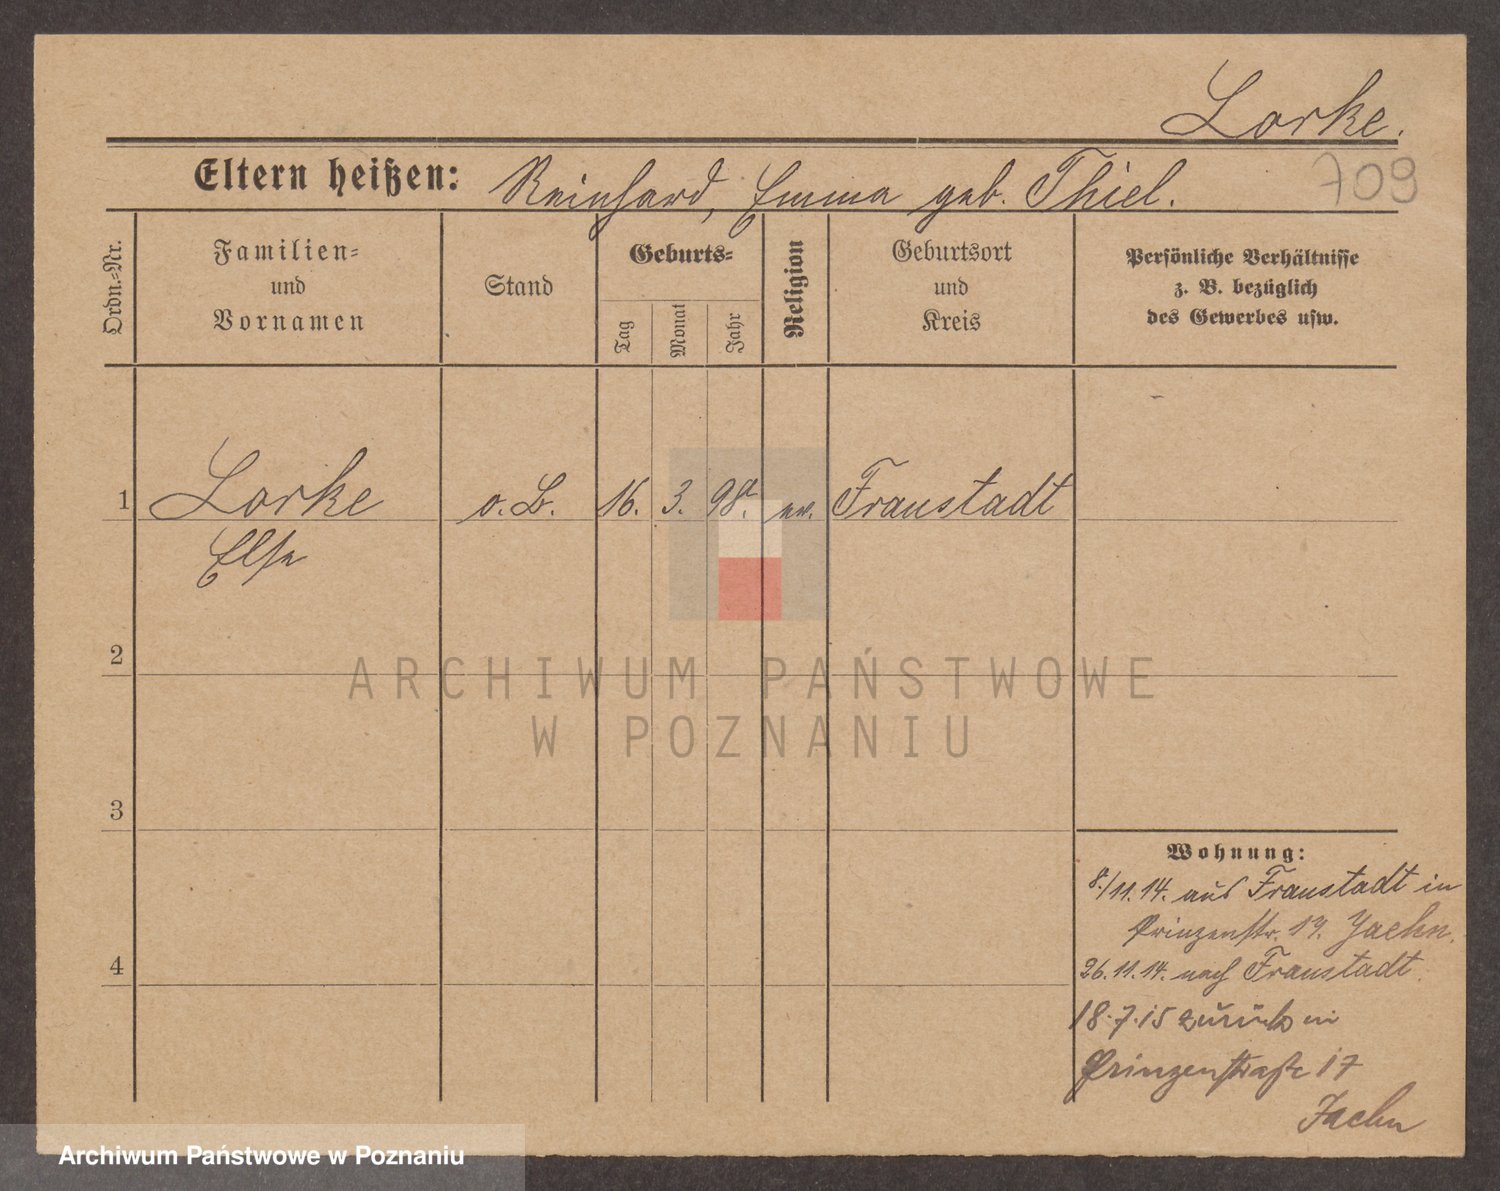 Lorke.
709
Eltern heißen: Reinhard, Emma geb. Thiel.
Ordn.-Nr.
Familien-
und
Vornamen
Stand
Geburts-
Tag
Monat
Jahr
Religion
Geburtsort
und
Kreis
Persönliche Verhältnisse
z. B. bezüglich
des Gewerbes usw.
1 Lorke o. B. 16. 3. 98. ev. Fraustadt
Else
2
3
4
Wohnung:
8./11.14. aus Fraustadt in
Prinzenstr. 17. Jaehn.
26.11.14. nach Fraustadt.
18.7.15 zurück in
Prinzenstraße 17
Jaehn
ARCHIWUM PAŃSTWOWE
W POZNANIU
Archiwum Państwowe w Poznaniu